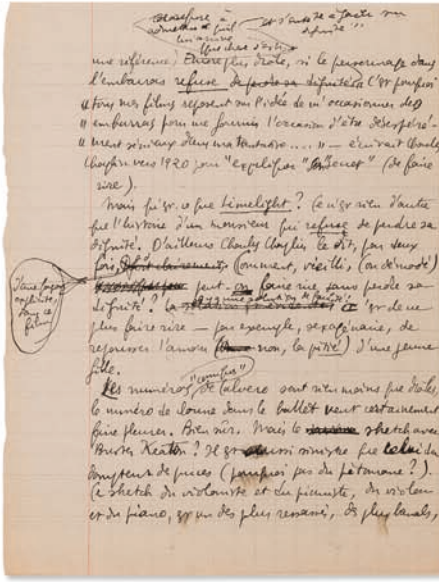 et s'entête à garder sa
dignité"
admettre qu'il
une référence. Encore plus drôle, si le personnage dans
l'embarras refuse de perdre sa dignité. C'est pourquoi
"tous mes films reposent sur l'idée de m'occasionner des
" embarras pour me fournir l'occasion d'être désespéré-
" ment sérieux dans ma tentative....." — écrivait Charly
Chaplin vers 1920 pour "expliquer" "son secret" (de faire
rire).
Mais qu'est-ce que Limelight? Ce n'est rien d'autre
que l'histoire d'un monsieur qui refuse de perdre sa
dignité. D'ailleurs Charly Chaplin le dit, par deux
fois,
D'une façon
explicite,
dans ce
film
Comment, vieilli, (ou démodé)
peut-on faire rire sans perdre sa
dignité? La
c'est de ne
plus faire rire — par exemple, sexagénaire, de
repousser l'amour (non, la pitié) d'une jeune
fille.
Les numéros "comiques" de Calvero sont rien moins que drôles,
le numéro de clown dans le ballet veut certainement
faire pleurer. Bien sûr. Mais le sketch avec
Buster Keaton? Il est aussi sinistre que celui du
dompteur de puces (pourquoi pas du pétomane?).
Ce sketch du violoniste et du pianiste, du violon
et du piano, est un des plus ressassés, des plus banals,